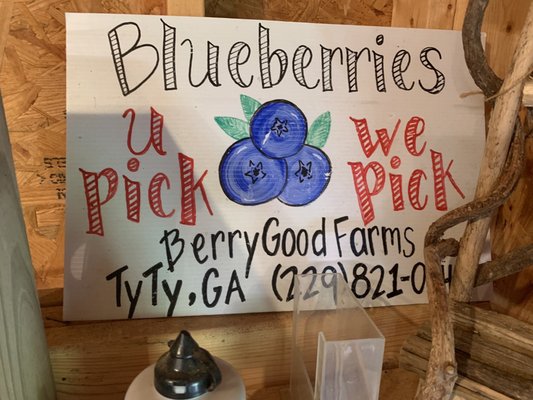 Blueberries
u pick
we pick
BerryGood Farms
TyTy, GA (229) 821-0